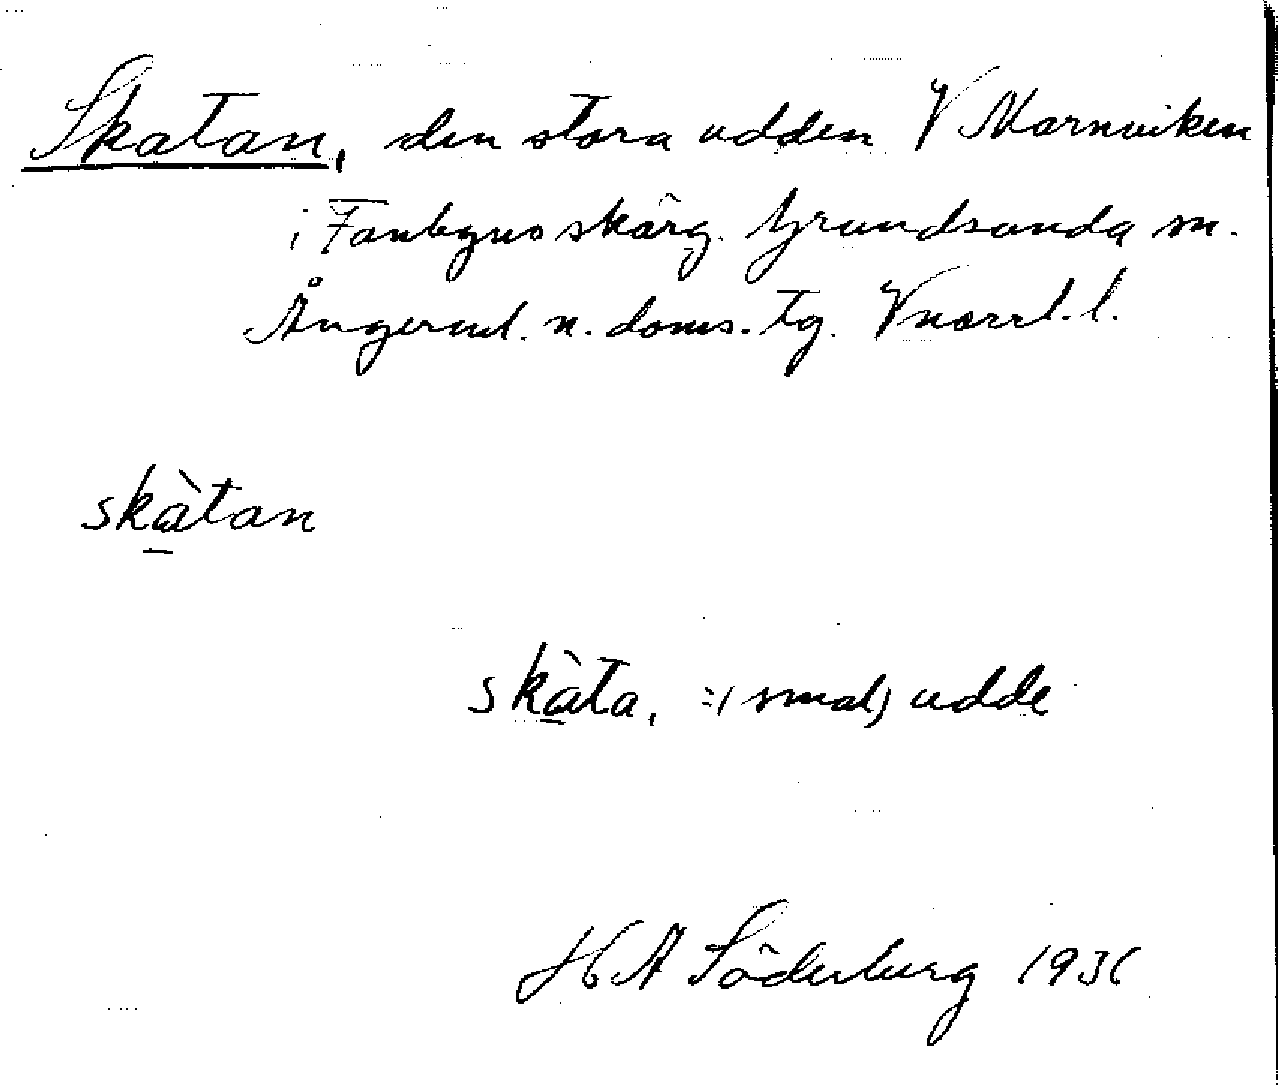 Skatan, den stora udden V Marnviken
i Fanbyns skärg. Grundsunda sn.
Ångerml. n. doms. tg. Vnorrl. l.
skàtan
skàta, =(smal) udde
H A Söderberg 1931